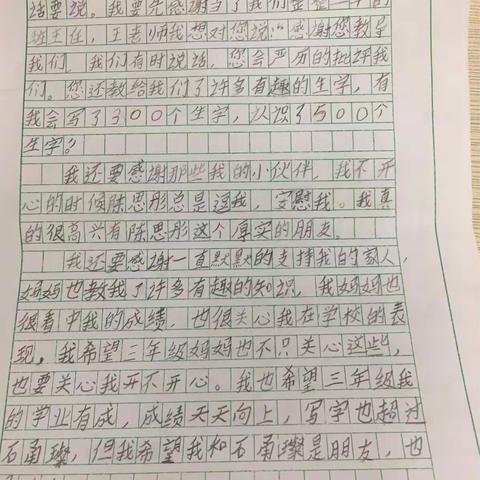 话要说。我要先感谢当了我们整整二年的
班主任，王老师我想对您说：“感谢您教导
我们，我们有时说话，您会严厉的批评我
们。您还教给我们了许多有趣的生字，有
我会写了300个生字，认识了500个
生字？
我还要感谢那些我的小伙伴，我不开
心的时候陈思彤总是逗我，安慰我。我真
的很高兴有陈思彤这个厚实的朋友。
我还要感谢一直默默的支持我的家人，
妈妈也教我了许多有趣的知识，我妈妈也
很看中我的成绩，也很关心我在学校的表
现，我希望三年级妈妈也不只关心这些，
也要关心我开不开心。我也希望三年级我
的学业有成，成绩天天向上，写字也超过
石甬璨，但我希望我和石甬璨是朋友，也